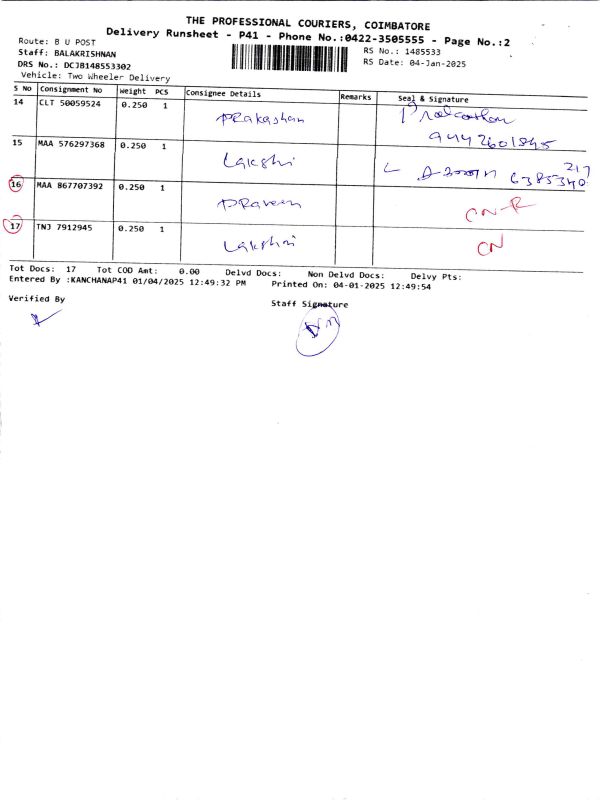 THE PROFESSIONAL COURIERS, COIMBATORE
Delivery Runsheet - P41 - Phone No.:0422-3505555 - Page No.:2
Route: B U POST
Staff: BALAKRISHNAN
DRS No.: DCJB148553302
Vehicle: Two Wheeler Delivery
RS No.: 1485533
RS Date: 04-Jan-2025
S No Consignment No Weight PCS Consignee Details Remarks Seal & Signature
14 CLT 50059524 0.250 1 Prakashan
9442601845
15 MAA 576297368 0.250 1 Lakshi
217
6385340
16 MAA 867707392 0.250 1 Praveen CN-R
17 TNJ 7912945 0.250 1 Lakshmi CN
Tot Docs: 17 Tot COD Amt: 0.00 Delvd Docs: Non Delvd Docs: Delvy Pts:
Entered By :KANCHANAP41 01/04/2025 12:49:32 PM Printed On: 04-01-2025 12:49:54
Verified By
Staff Signature